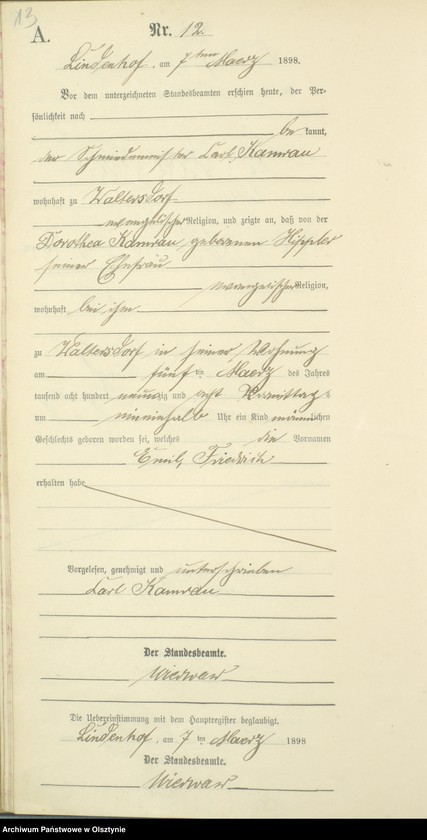 13
A.
Nr. 12.
Lindenhof, am 7ten Maerz 1898.
Vor dem unterzeichneten Standesbeamten erschien heute, der Per-
sönlichkeit nach
bekannt,
der Schmiedemeister Carl Kamrau
wohnhaft zu Waltersdorf
evangelischer Religion, und zeigte an, daß von der
Dorothea Kamrau geborenen Hippler
seiner Ehefrau
evangelischer Religion,
wohnhaft bei ihm
zu Waltersdorf in seiner Wohnung
am fünften Maerz des Jahres
tausend acht hundert neunzig und acht Vormittags
um neuneinhalb Uhr ein Kind männlichen
Geschlechts geboren worden sei, welches die Vornamen
Emil, Friedrich
erhalten habe
Vorgelesen, genehmigt und unterschrieben
Carl Kamrau
Der Standesbeamte.
Die Uebereinstimmung mit dem Hauptregister beglaubigt.
Lindenhof, am 7ten Maerz 1898
Der Standesbeamte.
Archiwum Państwowe w Olsztynie